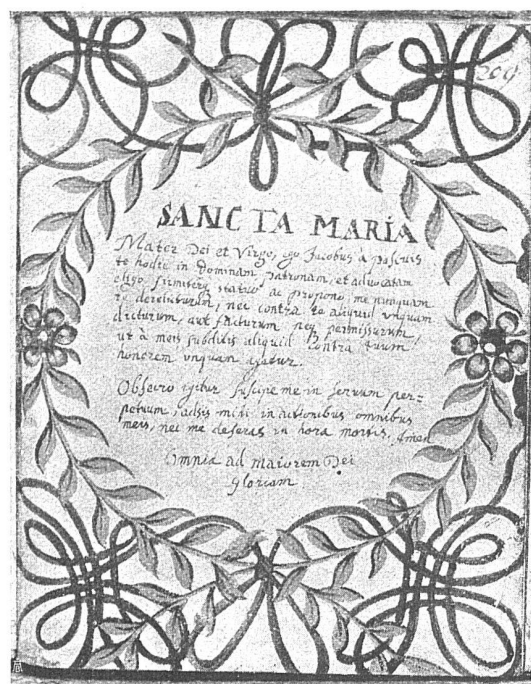 209
SANCTA MARIA
Mater Dei et Virgo, ego Jacobus à Pascuis
te hodie in Dominam Patronam, et aduocatam
eligo, firmiterq statuo ac propono, me nunquam
te derelicturum, nec contra te aliquid vnquam
dicturum, aut facturum neq permissurum,
ut à meis subditis aliquid contra tuum
honorem vnquam agatur.
Obsecro igitur suscipe me in seruum per=
petuum, adsis mihi in actionibus omnibus
meis, nec me deseras in hora mortis. Amen
Omnia ad maiorem Dei
gloriam